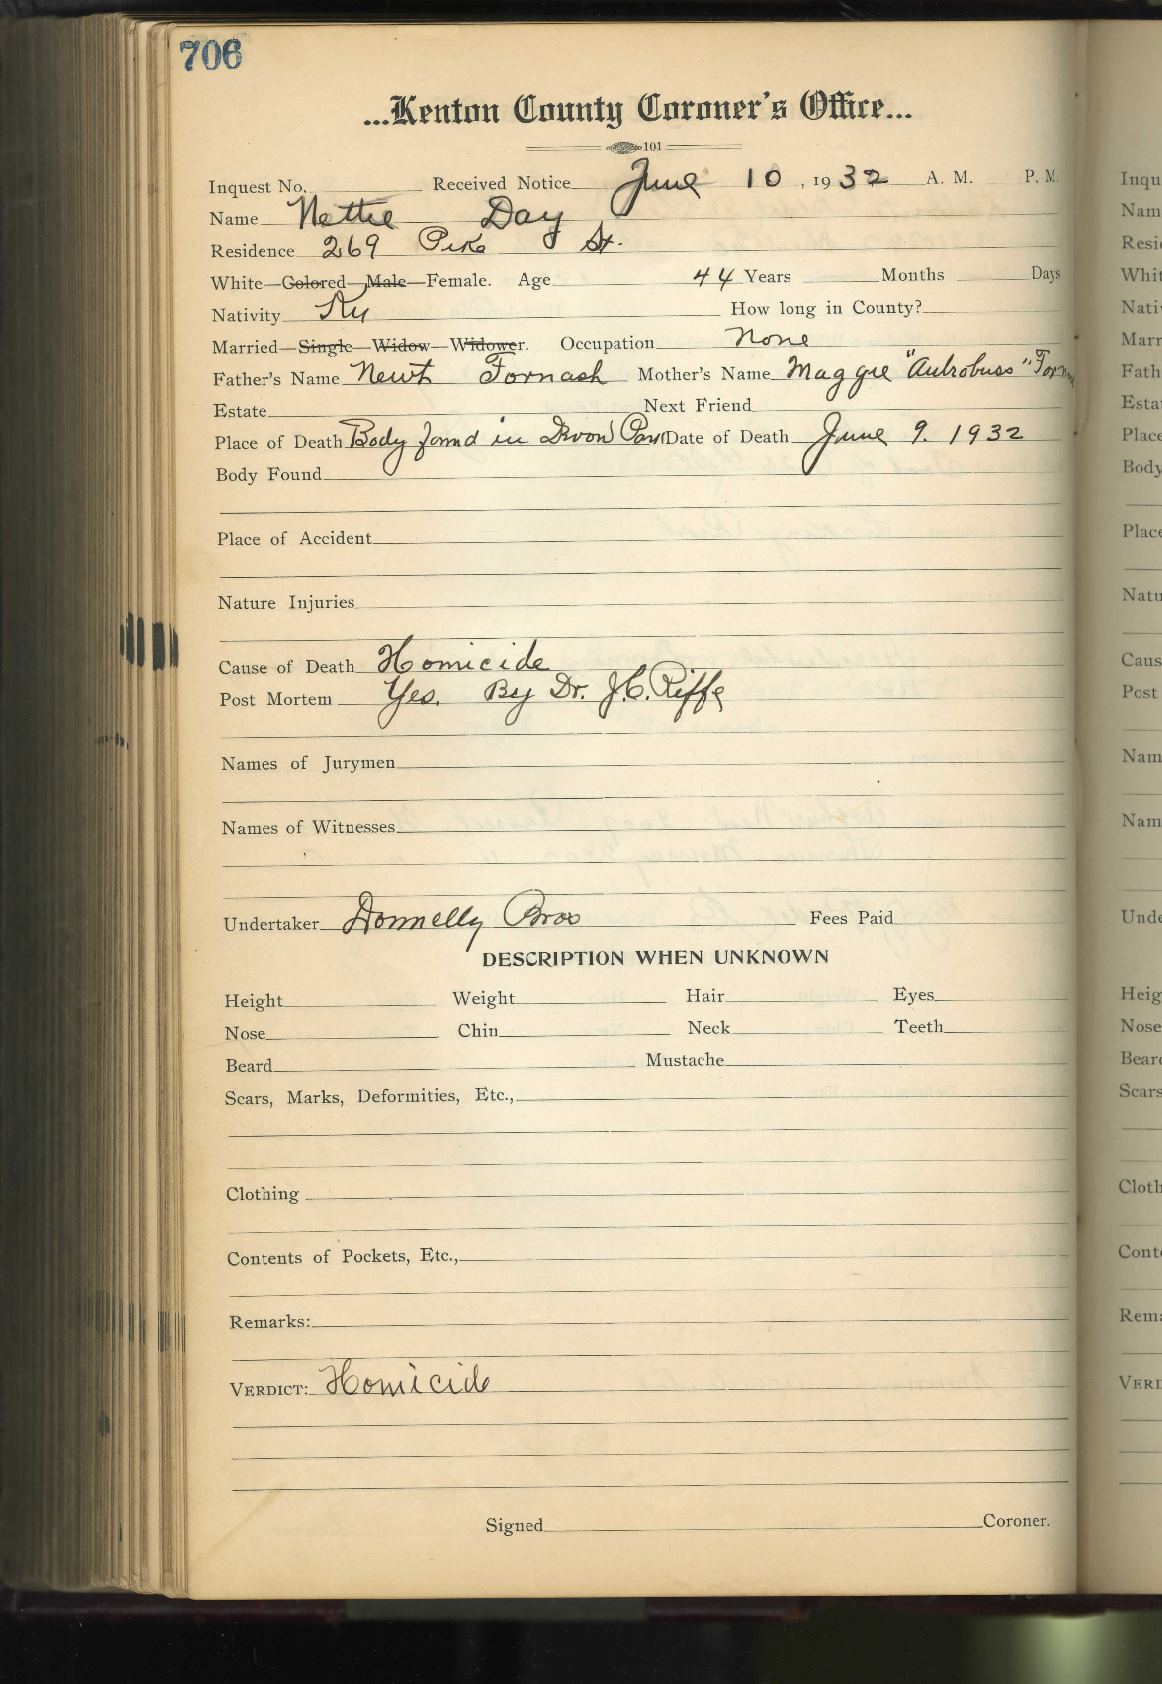 706
...Kenton County Coroner's Office...
101
Inquest No. Received Notice June 10, 1932 A. M. P. M.
Name Nettie Day
Residence 269 Pike St.
White—Colored—Male—Female. Age 44 Years Months Days
Nativity Ky
How long in County?
Married—Single—Widow—Widower. Occupation None
Father's Name Newt Fornash Mother's Name Maggie "Antrobuss"
Estate Next Friend
Place of Death Body found in Devon Park Date of Death June 9. 1932
Body Found
Place of Accident
Nature Injuries
Cause of Death Homicide
Post Mortem Yes. By Dr. J.C. Riffe
Names of Jurymen
Names of Witnesses
Undertaker Donnelly Bros Fees Paid
DESCRIPTION WHEN UNKNOWN
Height Weight Hair Eyes
Nose Chin Neck Teeth
Beard Mustache
Scars, Marks, Deformities, Etc.,
Clothing
Contents of Pockets, Etc.,
Remarks:
VERDICT: Homicide
Signed Coroner.